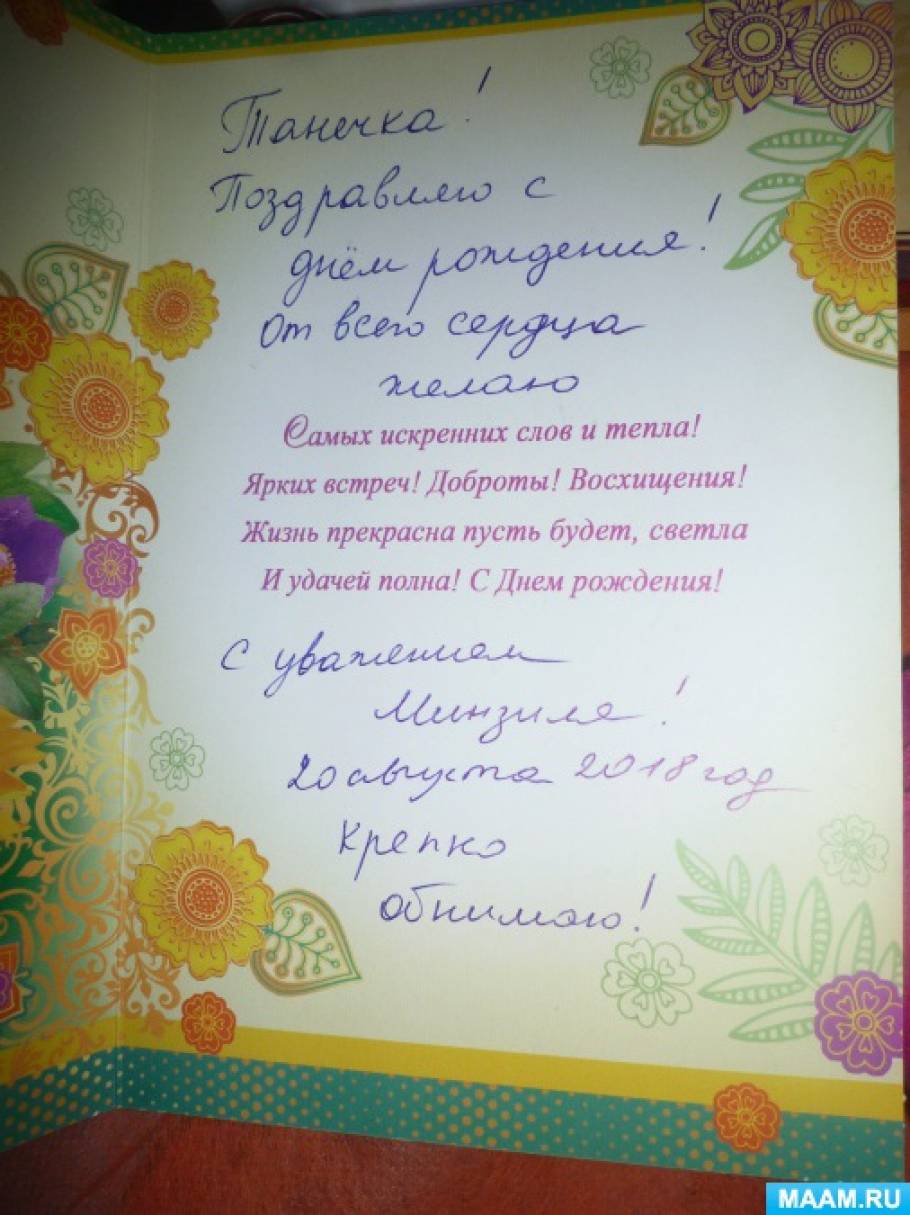 Танечка!
Поздравляю с
днём рождения!
От всего сердца
желаю
Самых искренних слов и тепла!
Ярких встреч! Доброты! Восхищения!
Жизнь прекрасна пусть будет, светла
И удачей полна! С Днем рождения!
С уважением
Минзиля!
20 августа 2018 год
Крепко
обнимаю!
MAAM.RU